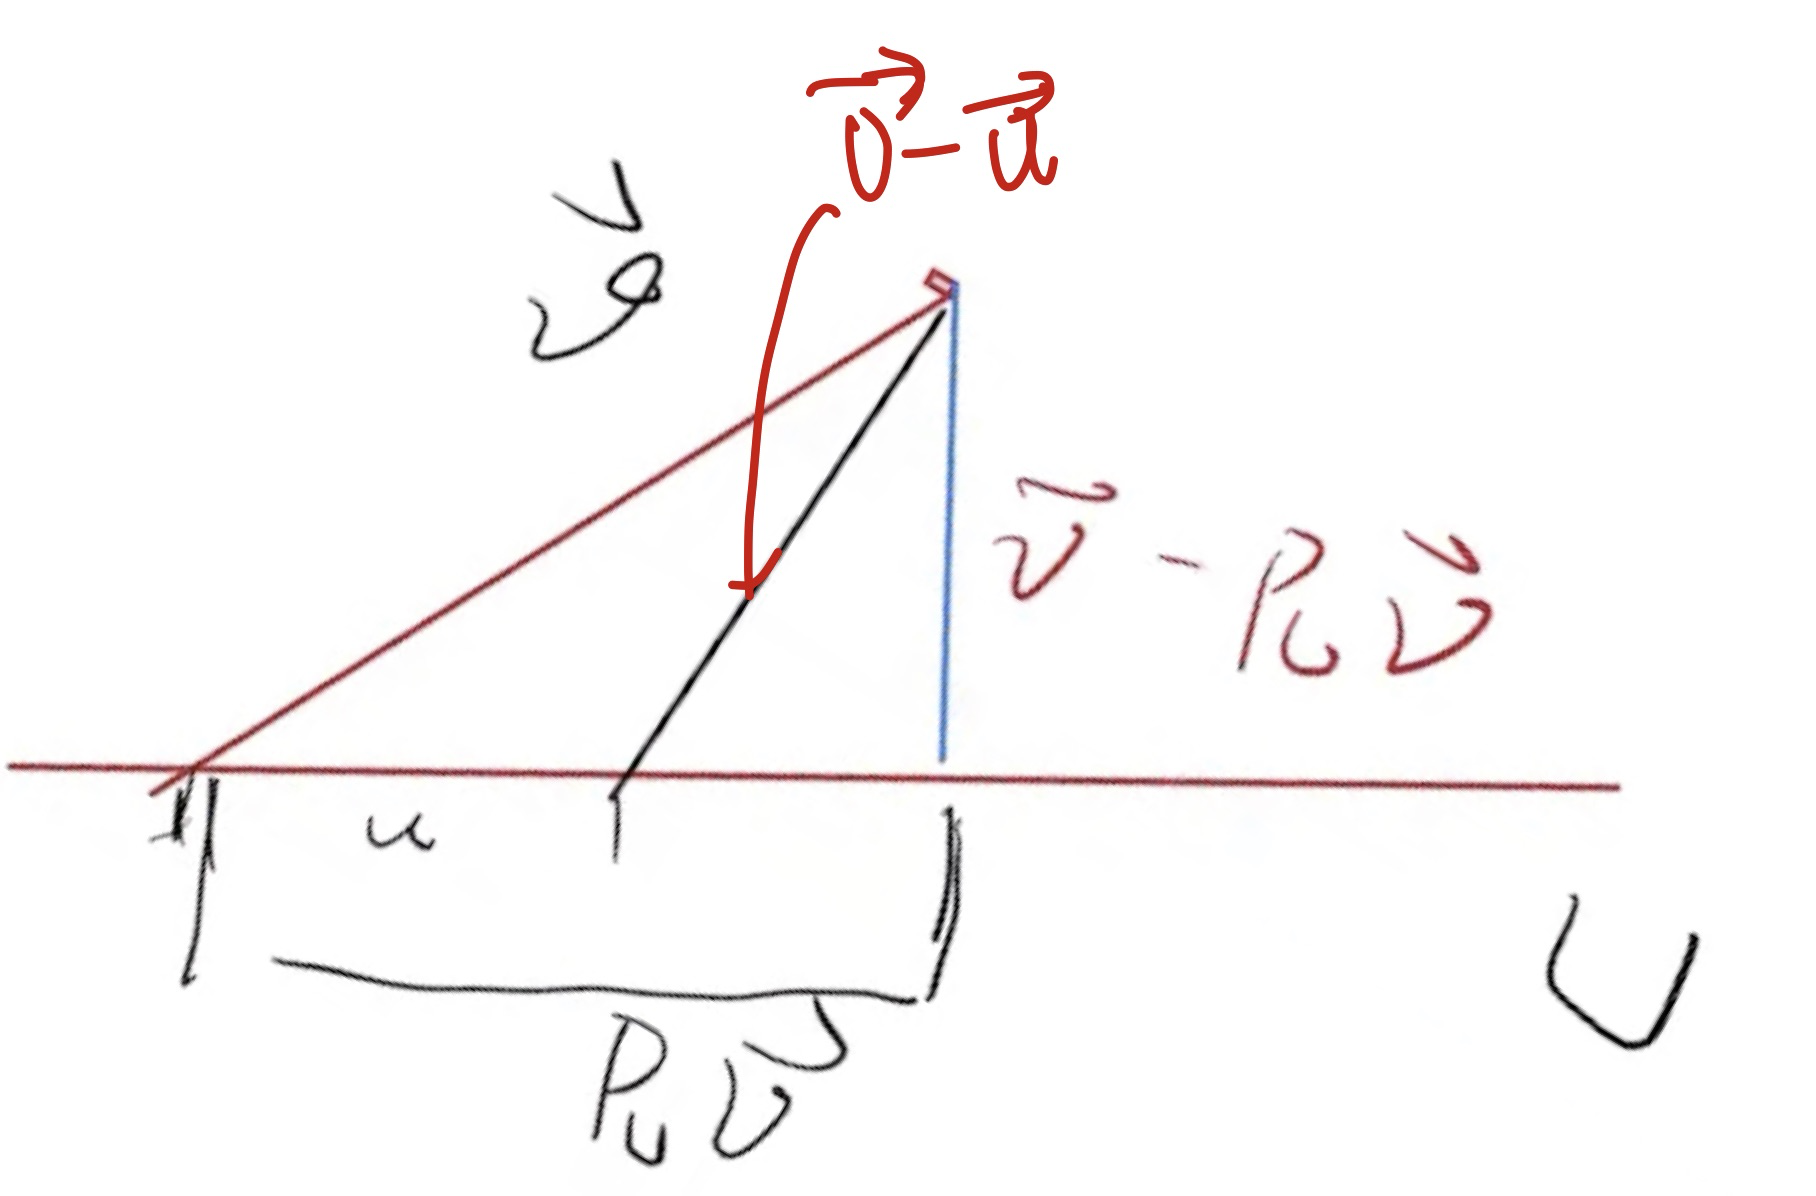 v⃗ - u⃗
v⃗
v⃗ - P_U v⃗
u
U
P_U v⃗